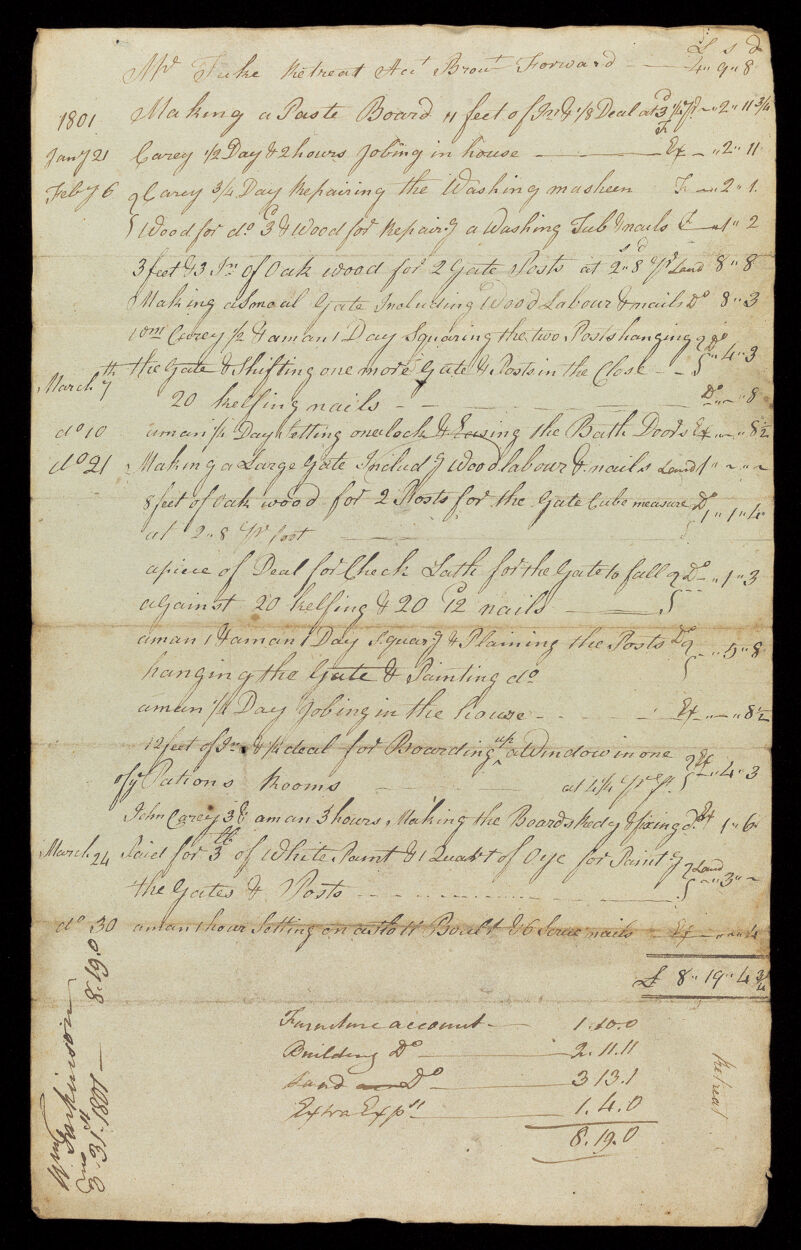 £ s d
Mr Tuke Retreat Act Brout Forward — 4" 9" 8
1801 Making a Paste Board 11 feet of In & 1/8 Deal at 3 1/2 pr — 2" 11 3/4
Jany 21 Carey 1/2 Day & 2 hours Jobing in house — Ex — "2" 11
Feby 6 Carey 3/4 Day Repairing the Washing masheen F — "2" 1
Wood for do 3d & Wood for Repairg a Washing Tub & nails F — "1" 2
3 feet & 3 In of Oak wood for 2 Gate Posts at 2s"8d pr Land 8" 8
Making a Smoal Gate Including Wood Labour & nails Do 8" 3
Wm Carey 1/2 & a man 1 Day Squaring the two Posts hanging Do
the Gate & Shifting one more Gate & Posts in the Close — "4" 3
March 7th 20 kelfing nails — Do — "8
do 10 a man 1/4 Day Setting one lock & Easing the Bath Doors Ex — "8 1/2
do 21 Making a Large Gate Includg Wood labour & nails Land 1" ~ " ~
8 feet of Oak wood for 2 Posts for the Gate Cube measure Do
at 2"8 pr foot — 1" 1" 4
a piece of Deal for Check Lath for the Gate to fall Do — "1" 3
against 20 kelfing & 20 12d nails
a man 1 & a man 1 Day Squarg & Plaining the Posts Do
hanging the Gate & Painting do — "5" 8
a man 1/4 Day Jobing in the house Ex — "8 1/2
12 feet of In & 1/2 deal for Boarding up a Window in one Ex
of ye Pations Rooms — at 4 1/4 pr ft — "4" 3
John Carey 3 & a man 3 hours Making the Boards Redy & fixing do Ex 1" 6
March 24 Paid for 3lb of White Paint & 1 Quart of Oye for Paintg Land
the Gates & Posts — "3" ~
do 30 a man 1 hour Setting on a Boult & 6 Scrue nails Ex — "4
£ 8" 19" 4 3/4
Furniture account — 1.10.0
Building Do — 2.11.11
Land Do — 3 13.1
Extra Exps — 1.4.0
8.19.0
Retreat
Wm Parkinson
3mo 31st 1801 — 8.19.0